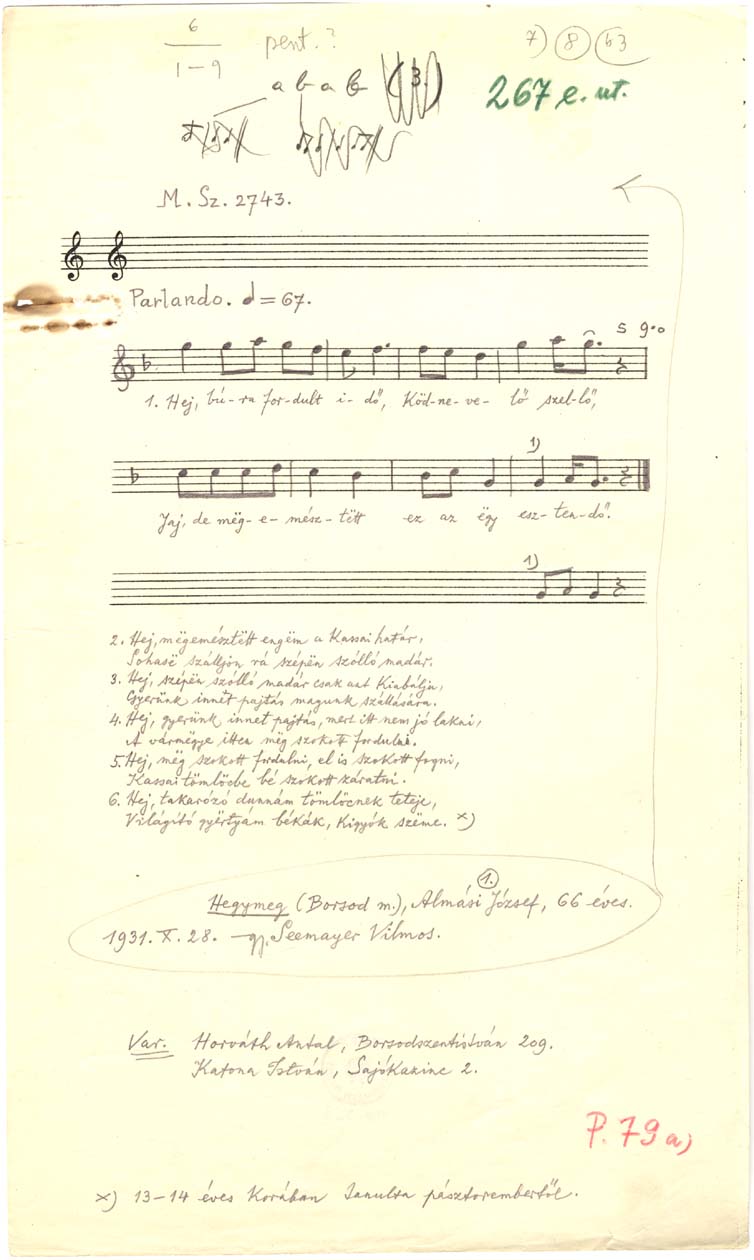 6
1-9
pent.?
7) 8 b3
a b a b (3.)
267 e. ut.
M. Sz. 2743.
Parlando. = 67.
5 9.0
1. Hej, bú-ra for-dult i-dő, Köd-ne-ve-lő szel-lő,
1)
Jaj, de mëg-e-mész-tëtt ez az ëgy esz-ten-dő.
1)
2. Hej, mëgemésztëtt engëm a Kassai határ,
Sohasë szálljon rá szépën szólló madár.
3. Hej, szépën szólló madár csak azt Kiabálja,
Gyerünk innët pajtás magunk szállására.
4. Hej, gyerünk innet pajtás, mert itt nem jó lakni,
A vármëgye itten mëg szokott fordulni.
5. Hej, mëg szokott fordulni, el is szokott fogni,
Kassai tömlöcbe bé szokott záratni.
6. Hej, takarózó dunnám tömlöcnek teteje,
Világító gyërtyám békák, Kigyók szëme. x)
1.
Hegymeg (Borsod m.), Almási József, 66 éves.
1931. X. 28. gy. Seemayer Vilmos.
Var. Horváth Antal, Borsodszentistván 209.
Katona István, Sajókazinc 2.
P. 79 a)
x) 13-14 éves Korában tanulta pásztorembertől.